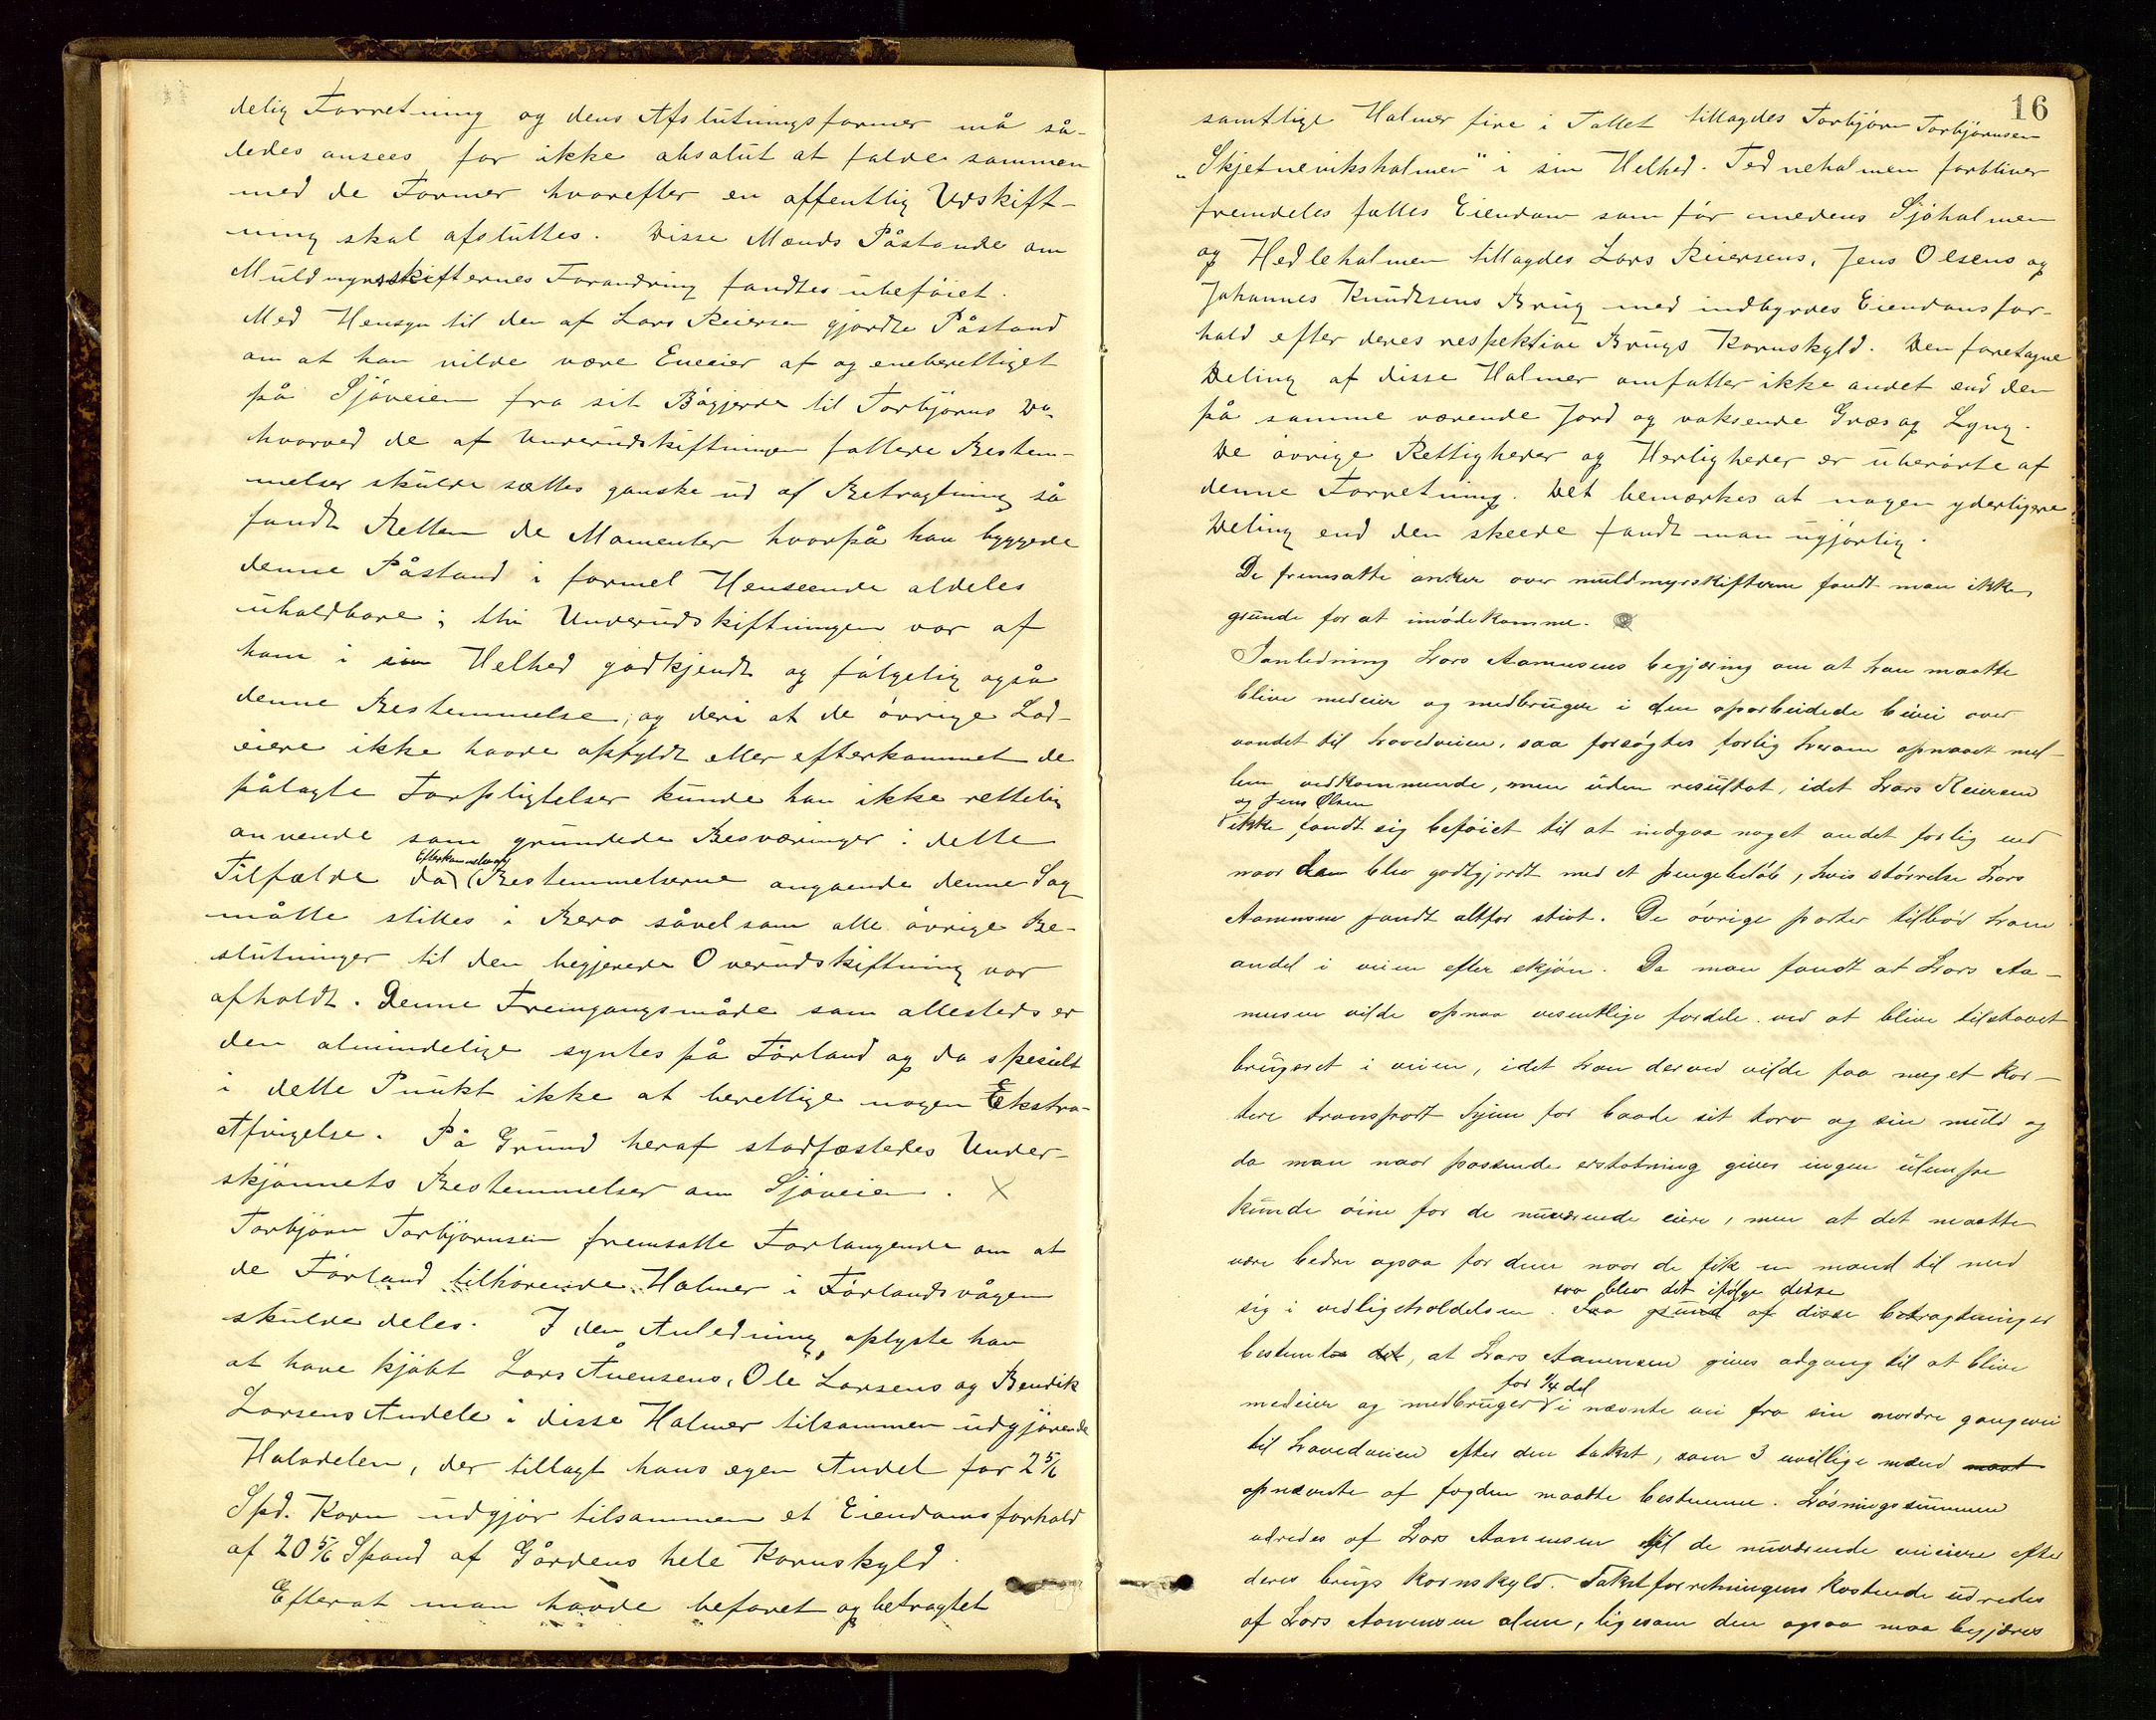 delig Forretning og dens Afslutningsformer må så-
ledes ansees for ikke absolut at falde sammen
med de Former hvorefter en offentlig Udskift-
ning skal afsluttes. Disse Mænds Påstande om
Muldmyrskifternes Forandring fandtes ubeføiet.
Med Hensyn til den af Lars Reiersen gjordte Påstand
om at han vilde være Eneeier af og eneberettiget
på Sjøveien fra sit Bøgjerde til Torbjørns Do,
hvorved de af Underudskiftningen fattede Bestem-
melser skulde sættes ganske ud af Betragtning så
fandt Retten de Momenter hvorpå han byggede
denne Påstand i formel Henseende aldeles
uholdbare; thi Underudskiftningen var af
ham i sin Helhed godkjendt og følgelig også
denne Bestemmelse; og deri at de øvrige Lod-
eiere ikke havde opfyldt eller efterkommet de
pålagte Forpligtelser kunde han ikke rettelig
anvende som grundede Besværinger i dette
Efterkommelse af
Tilfælde da Bestemmelserne angaaende denne Sag
måtte stilles i Bero såvelsom alle øvrige Be-
slutninger til den begjerede Overudskiftning var
afholdt. Denne Fremgangsmåde som allesteds er
den almindelige syntes på Førland og da spesielt
i dette Punkt ikke at berettige nogen Ekstra-
Afvigelse. På Grund heraf stadfæstedes Under-
skjønnets Bestemmelser om Sjøveien. X
Torbjørn Torbjørnsen fremsatte Forlangende om at
de Førland tilhørende Holmer i Førlandsvågen
skulde deles. I den Anledning oplyste han
at have kjøbt Lars Åuensens, Ole Larsens og Bendik
Larsens Andele i disse Holmer tilsammen udgjørende
Halvdelen, der tillagt hans egen Andel for 2 5/6
Spd. Korn udgjør tilsammen et Eiendomsforhold
af 20 5/6 Spand af Gårdens hele Kornskyld.
Efterat man havde befaret og betragtet
16
samtlige Holmer fire i Tallet tillagdes Torbjørn Torbjørnsen
"Skjetnevikshølmen" i sin Helhed. Tednehølmen forbliver
fremdeles fælles Eiendom som før medens Sjøholmen
og Hedleholmen tillagdes Lars Reiersens, Jens Olsens og
Johannes Knudtsens Brug med indbyrdes Eiendomsfor-
hold efter deres respektive Brugs Kornskyld. Den foretagne
Deling af disse Holmer omfatter ikke andet end den
på samme værende Jord og voksende Græs og Lyng.
De øvrige Rettigheder og Herligheder er uberørte af
denne Forretning. Det bemærkes at nogen yderligere
Deling end den skeede fandt man ugjørlig.
De fremsatte anker over muldmyrskifterne fandt man ikke
grunde for at imødekomme.
I anledning Lars Aamunsens begjæring om at han maatte
blive medeier og medbruger i den oparbeidede bivei over
vandet til hovedveien, saa forsøgtes forlig herom opnaaet mel-
lem vedkommende, men uden resultat, idet Lars Reiersen
og Jens Olsen
ikke fandt sig beføiet til at indgaa noget andet forlig end
naar den blev godtgjordt med et pengebeløb, hvis størrelse Lars
Aamunsen fandt altfor stort. De øvrige parter tilbød ham
andel i veien efter skjøn. Da man fandt at Lars Aa-
munsen vilde opnaa vesentlige fordele ved at blive tilstaaet
brugsret i veien, idet han derved vilde faa noget kor-
tere transport hjem for baade sit torv og sin muld og
da man naar passende erstatning gives ingen ulempe
kunde øine for de nuværende eiere, men at det maatte
være bedre ogsaa for dem naar de fik en mand til med
saa blev det ifølge disse
sig i vedligeholdelsen. Paa grund af disse betragtninger
bestemt det, at Lars Aamunsen gives adgang til at blive
for 1/4 del
medeier og medbruger i nævnte vei fra sin nordre gangvei
til hovedveien efter den takst, som 3 uvillige mænd
opnævnte af fogden maatte bestemme. Løsningssummen
udredes af Lars Aamunsen til de nuværende veieiere efter
deres brugs kornskyld. Takstforretningens kostende udredes
af Lars Aamunsen alene, ligesom den ogsaa maa begjæres